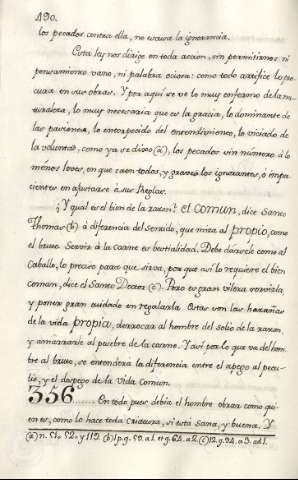 490.
los pecados contra ella, no excusa la ignorancia.
Esta ley nos dirige en toda accion, sin permitirnos ni
pensamiento vano, ni palabra ociosa: como todo artifice lo pro
cura en sus obras. Y por aqui se ve lo muy enfermo de la na
turaleza, lo muy necesaria que es la gracia, lo dominante de
las pasiones, lo entorpecido del entendimiento, lo viciado de
la voluntad, como ya se dixo (a), los pecados sin número à lo
ménos leves, en que caen todos, y graves los ignorantes, ò impa
cientes en ajustarse à sus Reglas.
¿Y qual es el bien de la razon? el comun, dice Santo
Thomas (b) à diferencia del Sentido, que mira al propio, como
el bruto. Servir à la carne es bestialidad. Debe dársele como al
Caballo, lo preciso para que sirva, por que asi lo requiere el bien
comun, dice el Santo Doctor (c). Pero es gran vileza servirla,
y poner gran cuidado en regalarla. Estas son las hazañas
de la vida propia, derrocar al hombre del solio de la razon,
y amarrarle al pesebre de la carne. Y asi por lo que va del hom
bre al bruto, se entenderà la diferencia entre el apego al pecu
lio, y el despego de la Vida Comun.
356...... En todo pues debia el hombre obrar como qui
en es, como lo hace toda criatura, si està sana, y buena. Y
(a) n. 51. 52. y 119. (b) 1. p. q. 59. a. 1. et q. 64. a. 2. (c) 12. q. 94. a. 3. ad 1.